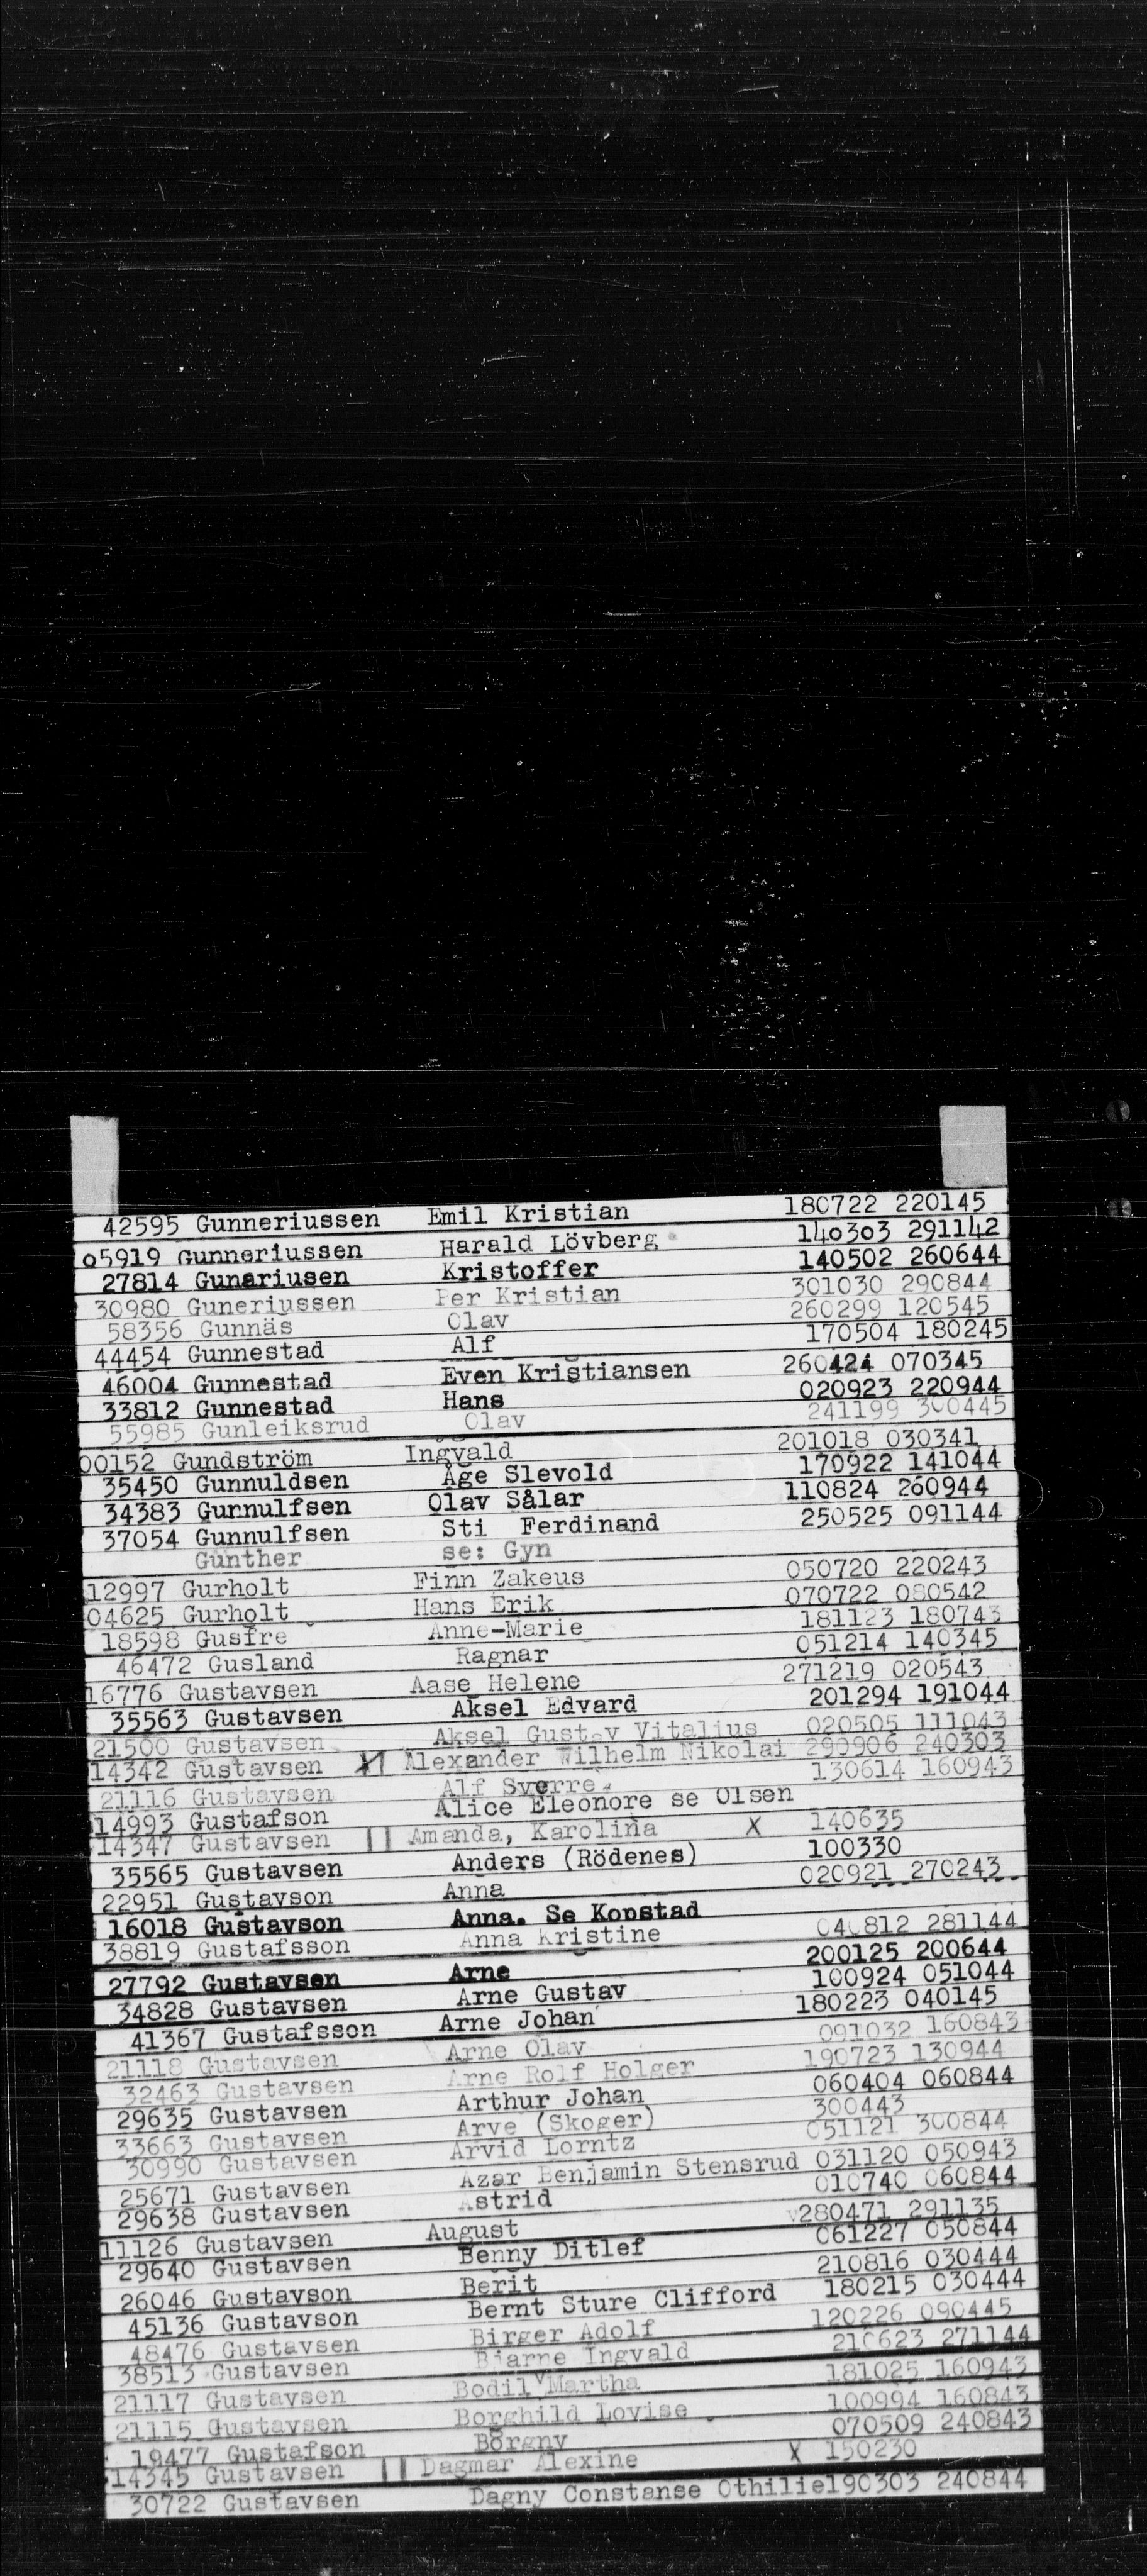 42595 Gunneriussen Emil Kristian 180722 220145
05919 Gunneriussen Harald Lövberg 140303 291142
27814 Gunariusen Kristoffer 140502 260644
30980 Guneriussen Per Kristian 301030 290844
58356 Gunnäs Olav 260299 120545
44454 Gunnestad Alf 170504 180245
46004 Gunnestad Even Kristiansen 260424 070345
33812 Gunnestad Hans 020923 220944
55985 Gunleiksrud Olav 241199 300445
00152 Gundström Ingvald 201018 030341
35450 Gunnuldsen Åge Slevold 170922 141044
34383 Gunnulfsen Olav Sålar 110824 260944
37054 Gunnulfsen Sti Ferdinand 250525 091144
Günther se: Gyn
12997 Gurholt Finn Zakeus 050720 220243
04625 Gurholt Hans Erik 070722 080542
18598 Gusfre Anne-Marie 181123 180743
46472 Gusland Ragnar 051214 140345
16776 Gustavsen Aase Helene 271219 020543
35563 Gustavsen Aksel Edvard 201294 191044
21500 Gustavsen Aksel Gustav Vitalius 020505 111043
14342 Gustavsen X| Alexander Wilhelm Nikolai 290906 240303
21116 Gustavsen Alf Sverre 130614 160943
14993 Gustafson Alice Eleonore se Olsen
14347 Gustavsen || Amanda, Karolina X 140635
35565 Gustavsen Anders (Rödenes) 100330
22951 Gustavson Anna 020921 270243
16018 Gustavson Anna. Se Konstad
38819 Gustafsson Anna Kristine 040812 281144
27792 Gustavsen Arne 200125 200644
34828 Gustavsen Arne Gustav 100924 051044
41367 Gustafsson Arne Johan 180223 040145
21118 Gustavsen Arne Olav 091032 160843
32463 Gustavsen Arne Rolf Holger 190723 130944
29635 Gustavsen Arthur Johan 060404 060844
33663 Gustavsen Arve (Skoger) 300443
30990 Gustavsen Arvid Lorntz 051121 300844
25671 Gustavsen Azar Benjamin Stensrud 031120 050943
29638 Gustavsen Astrid 010740 060844
11126 Gustavsen August 280471 291135
29640 Gustavsen Benny Ditlef 061227 050844
26046 Gustavson Berit 210816 030444
45136 Gustavson Bernt Sture Clifford 180215 030444
48476 Gustavsen Birger Adolf 120226 090445
38513 Gustavsen Bjarne Ingvald 210623 271144
21117 Gustavsen Bodil Martha 181025 160943
21115 Gustavsen Borghild Lovise 100994 160843
19477 Gustafson Borgny 070509 240843
14345 Gustavsen || Dagmar Alexine X 150230
30722 Gustavsen Dagny Constanse Othilie190303 240844